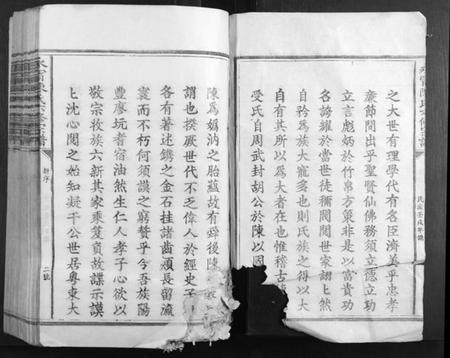 之大世有理學代有名臣濟美乎忠孝
廉節間出乎聖賢仙佛務須立德立功
立言彪炳於竹帛方策非是以富貴功
名誇耀於當世徒稱閥閱世家詡上然
自矜為族大寵多也則氏族之得以大
自有其所以為大者在也惟稽古
受氏自周武封胡公於陳以國
陳為媯汭之胎蘖故有舜後陳
謂也揆厥世代不乏偉人於經史子
各有著述鐫之金石挂諸齒頰長留瀛
寰而不朽何須讚之窮贊乎今吾族陽
豐廖坑者宿油然生仁人孝子心欲以
敬宗收族六新其家乘笈負故牒示謨
上沈心閱之始知凝干公世居粵東大
新序
二號